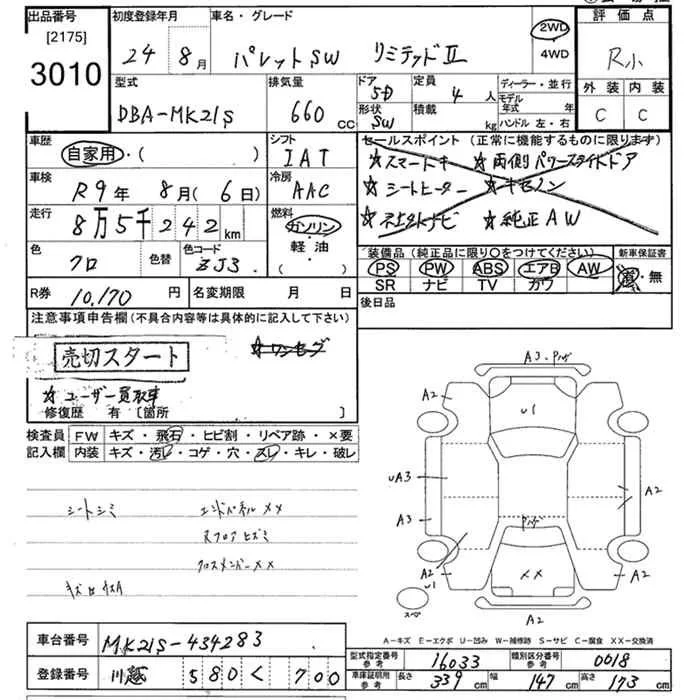 出品番号 [2175] 3010
初度登録年月 24年 8月
車名・グレード パレットSW リミテッドⅡ
2WD・4WD
評価点 R小
外装 C 内装 C
型式 DBA-MK21S
排気量 660cc
ドア 5D
形状 SW
定員 4人
積載 kg
ディーラー・並行
モデル年式 年
ハンドル 左・右
車歴 自家用・( )
シフト IAT
セールスポイント (正常に機能するものに限ります)
☆スマートキー ☆両側パワースライドドア
☆シートヒーター ☆キセノン
☆純正AW
車検 R9年 8月(6日)
冷房 AAC
走行 8万5千242km
燃料 ガソリン・軽・油・( )
色 クロ 色替 色コード ZJ3
装備品 (純正品に限り○をつけてください) 新車保証書
PS PW ABS エアB AW
SR ナビ TV カワ
有・無
R券 10,170円 名変期限 月 日
後日品
注意事項申告欄 (不具合内容等は具体的に記入して下さい)
売切スタート ☆ワンセグ
☆ユーザー買取車
修復歴 有 [箇所 ]
検査員 FW キズ・飛石・ヒビ割・リペア跡・×要
記入欄 内装 キズ・汚レ・コゲ・穴・スレ・キレ・破レ
シートシミ エンドパネルXX
Rフロアヒズミ
クロスメンバーXX
A3
A2
U1
UA3
A3
A2
A2
U1
XX
A2
A2
A2
スペ
A-キズ E-エクボ U-凹み W-補修跡 S-サビ C-腐食 XX-交換済
車台番号 MK21S-434283
登録番号 川越 580く 700
型式指定番号 参考 16033 類別区分番号 参考 0018
車庫証明用 参考 長さ 339cm 幅 147cm 高さ 173cm